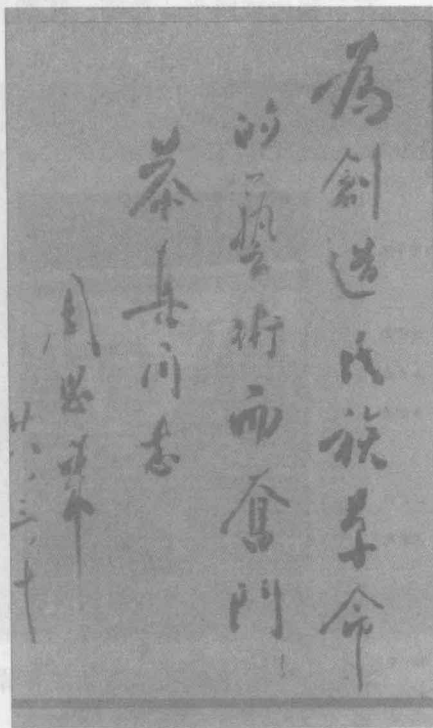 為創造民族革命
的藝術而奮鬥！
同志
周恩来
廿八、三、十